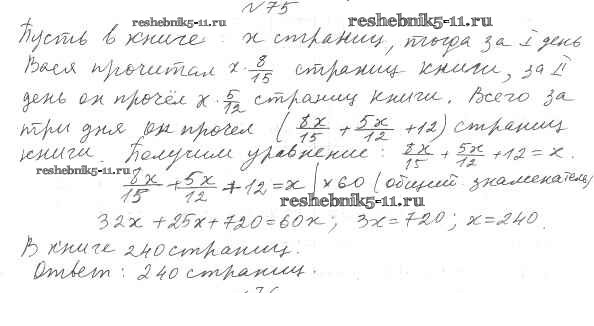 №75
reshebnik5-11.ru reshebnik5-11.ru
Пусть в книге: x страниц, тогда за I день
Вася прочитал x·8/15 страниц книги, за II
день он прочёл x·5/12 страниц книги. Всего за
три дня он прочёл (8x/15 + 5x/12 + 12) страниц
книги. Получим уравнение: 8x/15 + 5x/12 + 12 = x.
reshebnik5-11.ru
8x/15 + 5x/12 + 12 = x | ×60 (общий знаменатель)
reshebnik5-11.ru
32x + 25x + 720 = 60x; 3x = 720; x = 240.
В книге 240 страниц.
Ответ: 240 страниц.